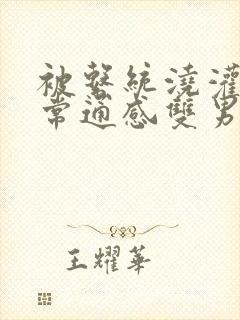 被系統澆灌
常通感雙男
王耀華